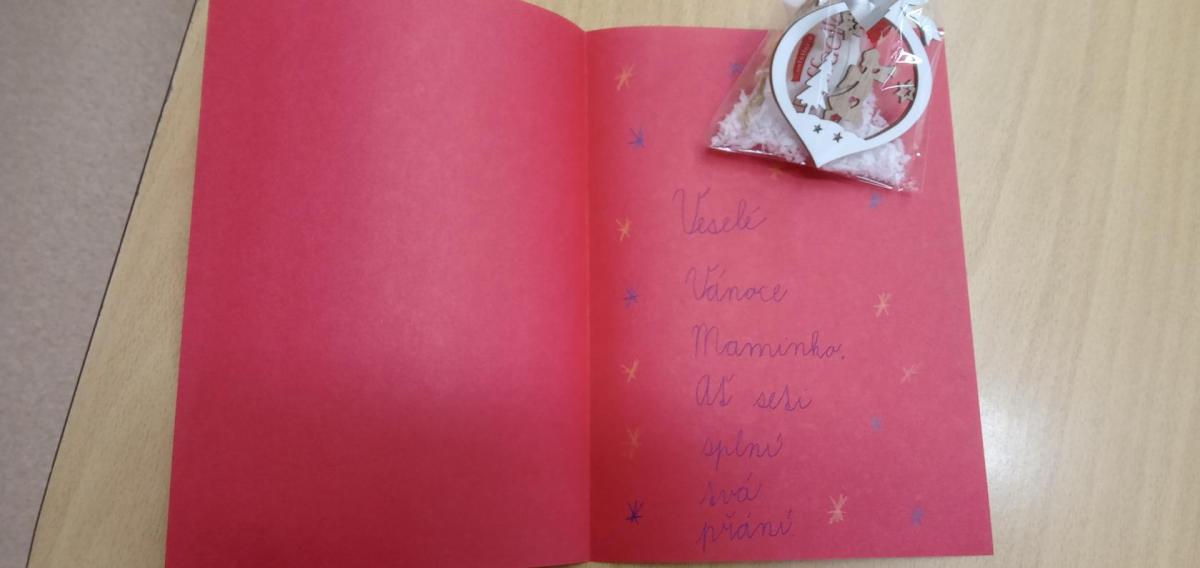 Veselé
Vánoce
Maminko.
Ať seti
splní
tvá
přání